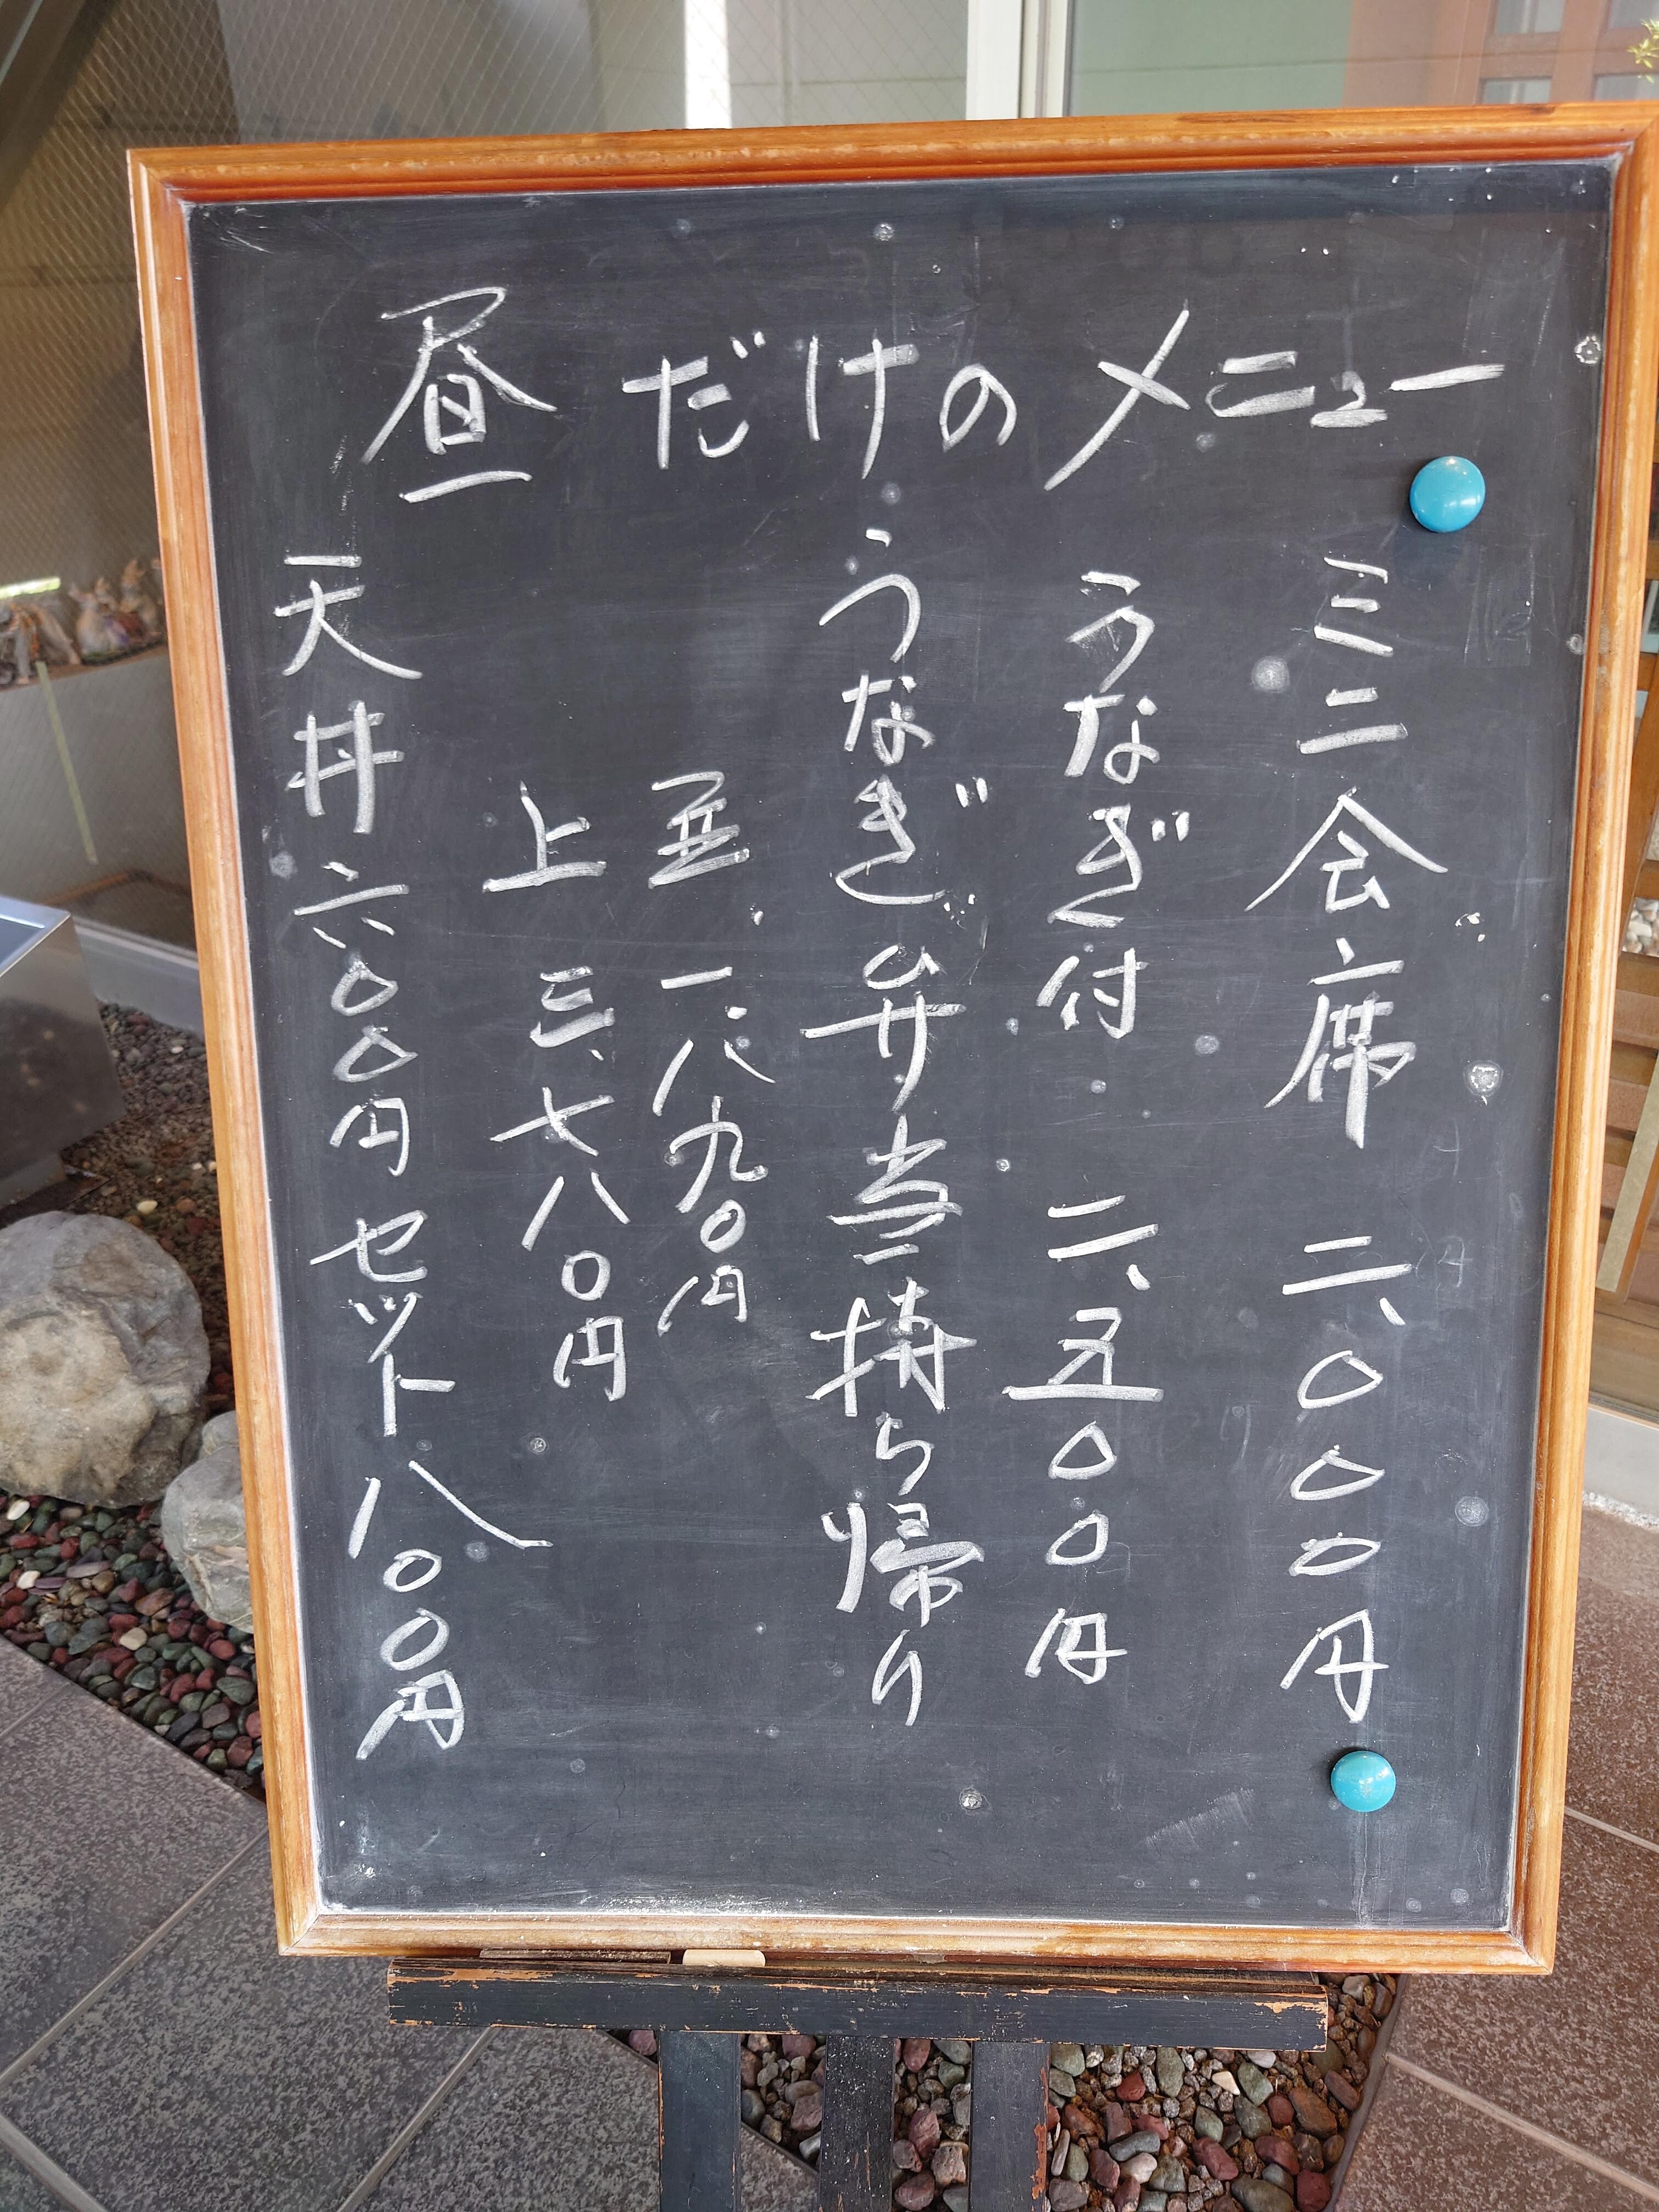 昼だけのメニュー
ミニ会席 二、〇〇〇円
うなぎ付 二、五〇〇円
うなぎ弁当 持ち帰り
並 一、八九〇円
上 三、七八〇円
天丼 六〇〇円 セット 八〇〇円